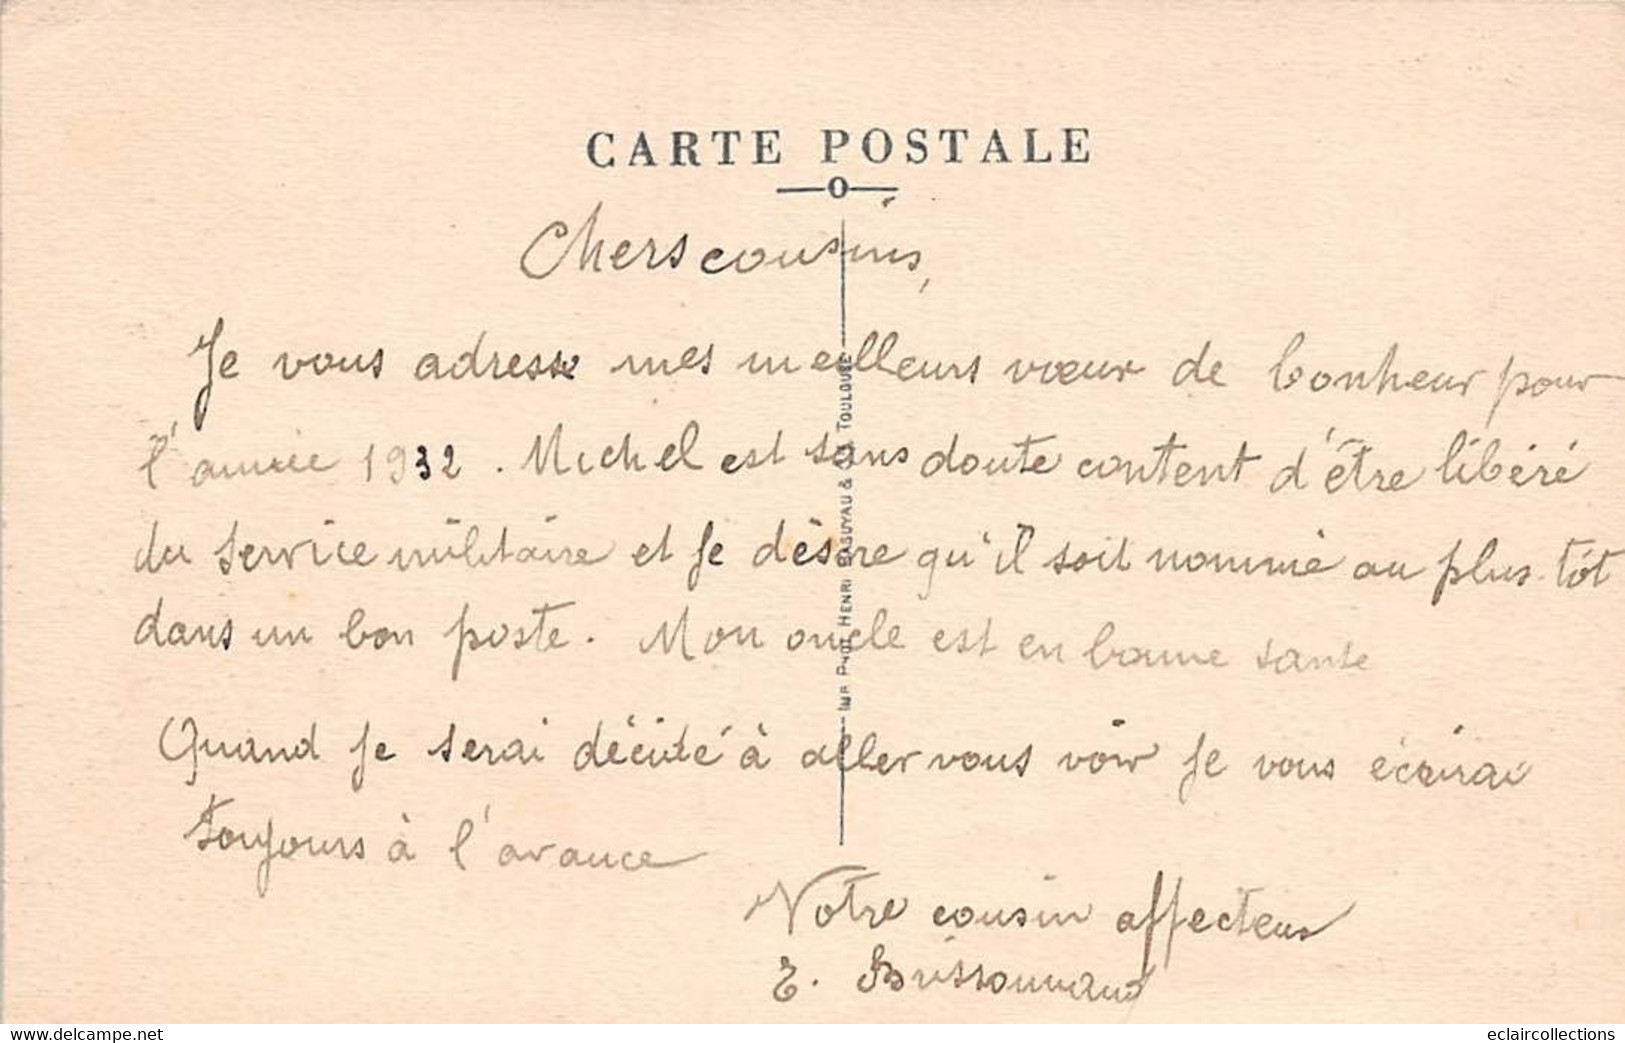 CARTE POSTALE
Chers cousins,
Je vous adresse mes meilleurs vœux de bonheur pour
l'année 1932. Michel est sans doute content d'être libéré
du service militaire et je désire qu'il soit nommé au plus tôt
dans un bon poste. Mon oncle est en bonne sante
Quand je serai décidé à aller vous voir je vous écrirai
toujours à l'avance
Votre cousin affectueux
E.
IMP PHOT HENRI BASUYAU & CIE TOULOUSE
www.delcampe.net
eclaircollections